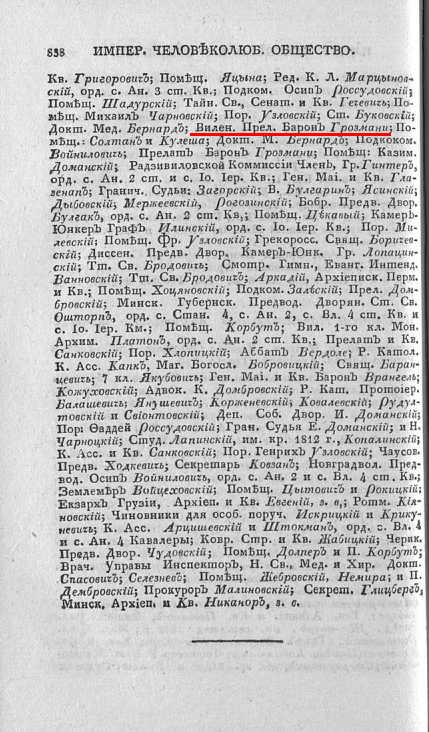 838 ИМПЕР. ЧЕЛОВѢКОЛЮБ. ОБЩЕСТВО.
Кв. Григоровичъ; Помѣщ. Яцына; Ред. К. Л. Марцынов-
скій, орд. с. Ан. 3 ст. Кв.; Подком. Осипъ Россудовскій;
Помѣщ. Шадурскій; Тайн. Св., Сенат. и Кв. Гегевичъ; По-
мѣщ. Михаилъ Чарновскій; Пор. Узловскій; Ст. Буковскій;
Докт. Мед. Бернардъ; Вилен. Прел. Баронъ Грозмани; По-
мѣщ.: Солтанъ и Кулеша; Докт. М. Бернардъ; Подкоком.
Войниловичъ; Прелатъ Баронъ Грозмани; Помѣщ: Казим.
Доманскій; Радзивиловской Коммиссіи Членъ, Гр. Гинтеръ,
орд. с. Ан. 2 ст. и с. Іо. Іер. Кв.; Ген. Маі. и Кв. Гла-
зенапъ; Гранич. Судьи: Загорскій; В. Булгаринъ; Ясинскій;
Дыбовскій; Мержеевскій, Рогозинскій; Бобр. Предв. Двор.
Булгакъ, орд. с. Ан. 2 ст. Кв.; Помѣщ. Цѣкавый; Камеръ-
Юнкеръ Графъ Илинскій, орд. с. Іо. Іер. Кв.; Пор. Ми-
левскій; Помѣщ. Фр. Узловскій; Грекоросс. Свящ. Боричев-
скій; Диссен. Предв. Двор. Камеръ-Юнк. Гр. Лопацин-
скій; Тт. Св. Бродовичъ; Смотр. Гимн., Еванг. Интенд.
Ванновскій; Тт. Св. Бродовичъ; Аркадій, Архіеписк. Перм.
и Кв.; Помѣщ. Хоцяновскій; Подком. Залѣскій; Прел. Дом-
бровскій; Минск. Губернск. Предвод. Дворян. Ст. Св.
Ошторпъ, орд. с. Стан. 4, с. Ан. 2, с. Вл. 4 ст. Кв. и
с. Іо. Іер. Км.; Помѣщ. Корбутъ; Вил. 1-го кл. Мон.
Архим. Платонъ, орд. с. Ан. 2 ст. Кв.; Прелатъ и Кв.
Санковскій; Пор. Хлопицкій; Аббатъ Вердоле; Р. Катол.
К. Асс. Капкъ, Маг. Богосл. Бобровицкій; Свящ. Баран-
цевичъ; 7 кл. Якубовичъ; Ген. Маі. и Кв. Баронъ Врангель;
Кожуховскій; Адвок. К. Домбровскій; Р. Кат. Протоіер.
Балашевичъ; Янушевичъ; Корженевскій; Ковалевскій; Рудул-
товскій и Свіонтовскій; Деп. Соб. Двор. И. Доманскій;
Пор: Ѳаддей Россудовскій; Гран. Судья Е. Доманскій; и Н.
Чарноцкій; Студ. Лапинскій, им. кр. 1812 г., Копалинскій;
К. Асс. и Кв. Санковскій; Пор. Генрихъ Узловскій; Чаусов.
Предв. Ходкевичъ; Секретарь Ковзанъ; Новградвол. Пред-
вод. Осип. Войниловичъ, орд. с. Ан. 2 и с. Вл. 4 ст. Кв.;
Землемѣръ Войцеховскій; Помѣщ. Цытовичъ и Рокицкій;
Екзархъ Грузіи, Архіеп. и Кв. Евгеній, з. в.; Ротм. Кія-
новскій; Чиновники для особ. поруч. Искрицкій и Крику-
невичъ; К. Асс. Арцишевскій и Штокманъ, орд. с. Вл. 4
и с. Ан. 4 Кавалеры; Ковр. Стр. и Кв. Жабицкій; Черик.
Предв. Двор. Чудовскій; Помѣщ. Долперъ и П. Корбутъ;
Врач. Управы Инспекторъ, Н. Св., Мед. и Хир. Докт.
Спасовичъ; Селезневъ; Помѣщ. Жебровскій, Немира; и П.
Дембровскій; Прокуроръ Малиновскій; Секрет. Глицбергъ,
Минск, Архіеп. и Кв. Никаноръ, з. в.